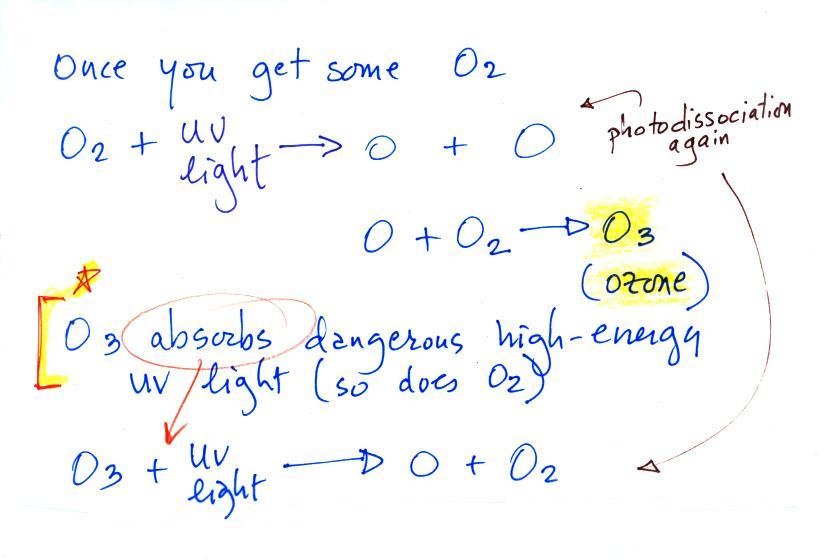 Once you get some O2
O2 + uv light → O + O
photodissociation
again
O + O2 → O3
(ozone)
O3 absorbs dangerous high-energy
uv light (so does O2)
O3 + uv light → O + O2